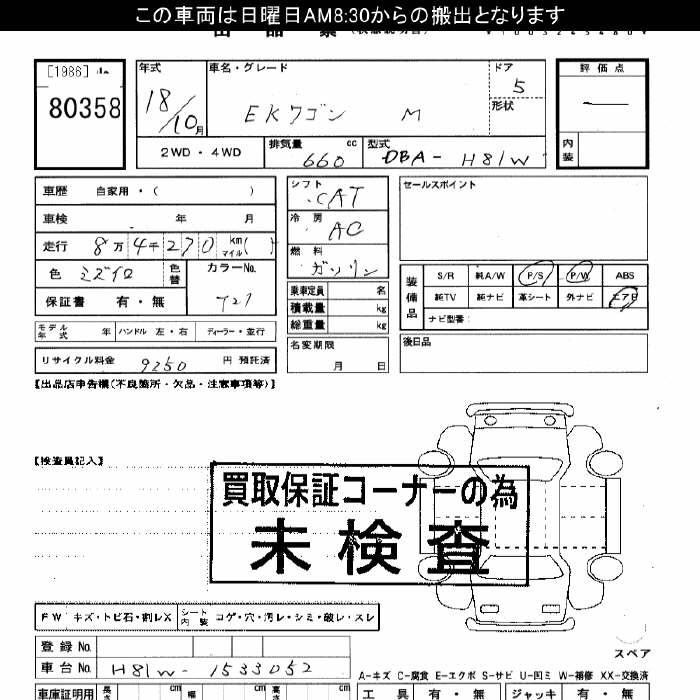 この車両は日曜日AM8:30からの搬出となります
[1986]
80358
年式
18/10月
車名・グレード
EKワゴン M
ドア
5
形状
評価点
内装
2WD・4WD
排気量 660 cc
型式 DBA-H81W
車歴 自家用・( )
車検 年 月
走行 8万4千270 km マイル( )
色 ミズイロ 色替
カラーNo.
T27
保証書 有・無
シフト
CAT
冷房
AC
燃料
ガソリン
乗車定員 名
積載量 kg
総重量 kg
セールスポイント
装備品
S/R 純A/W P/S P/W ABS
純TV 純ナビ 革シート 外ナビ エアB
ナビ型番:
モデル年式 年 ハンドル 左・右 ディーラー・並行
リサイクル料金 9250 円 預託済
名変期限
月 日
後日品
【出品店申告欄(不良箇所・欠品・注意事項等)】
【検査員記入】
買取保証コーナーの為
未検査
FW キズ・トビ石・割レX
シート内装 コゲ・穴・汚レ・シミ・破レ・スレ
登録No.
車台No. H81W-1533052
スペア
A-キズ C-腐食 E-エクボ S-サビ U-凹ミ W-補修 XX-交換済
車庫証明用 長さ cm 幅 cm 高さ cm
工具 有・無 ジャッキ 有・無